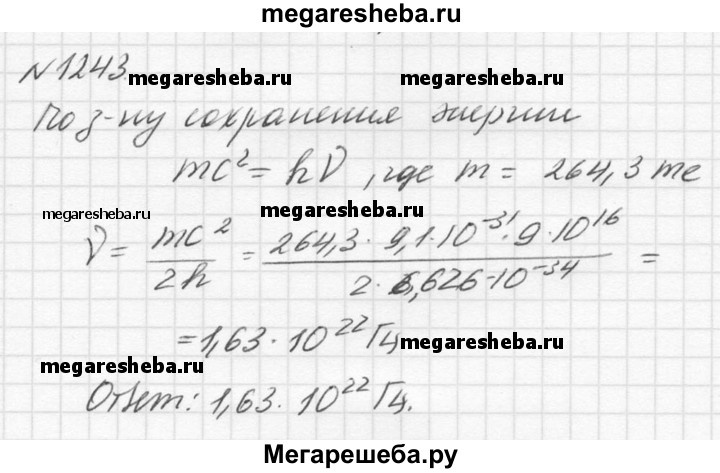 megaresheba.ru
№1243
megaresheba.ru megaresheba.ru
По з-ну сохранения энергии
mc² = hν, где m = 264,3 me
megaresheba.ru megaresheba.ru
ν = mc²/2h = 264,3 · 9,1 · 10⁻³¹ · 9 · 10¹⁶/2 · 6,626 · 10⁻³⁴ =
= 1,63 · 10²² Гц
megaresheba.ru megaresheba.ru
Ответ: 1,63 · 10²² Гц.
Мегарешеба.ру